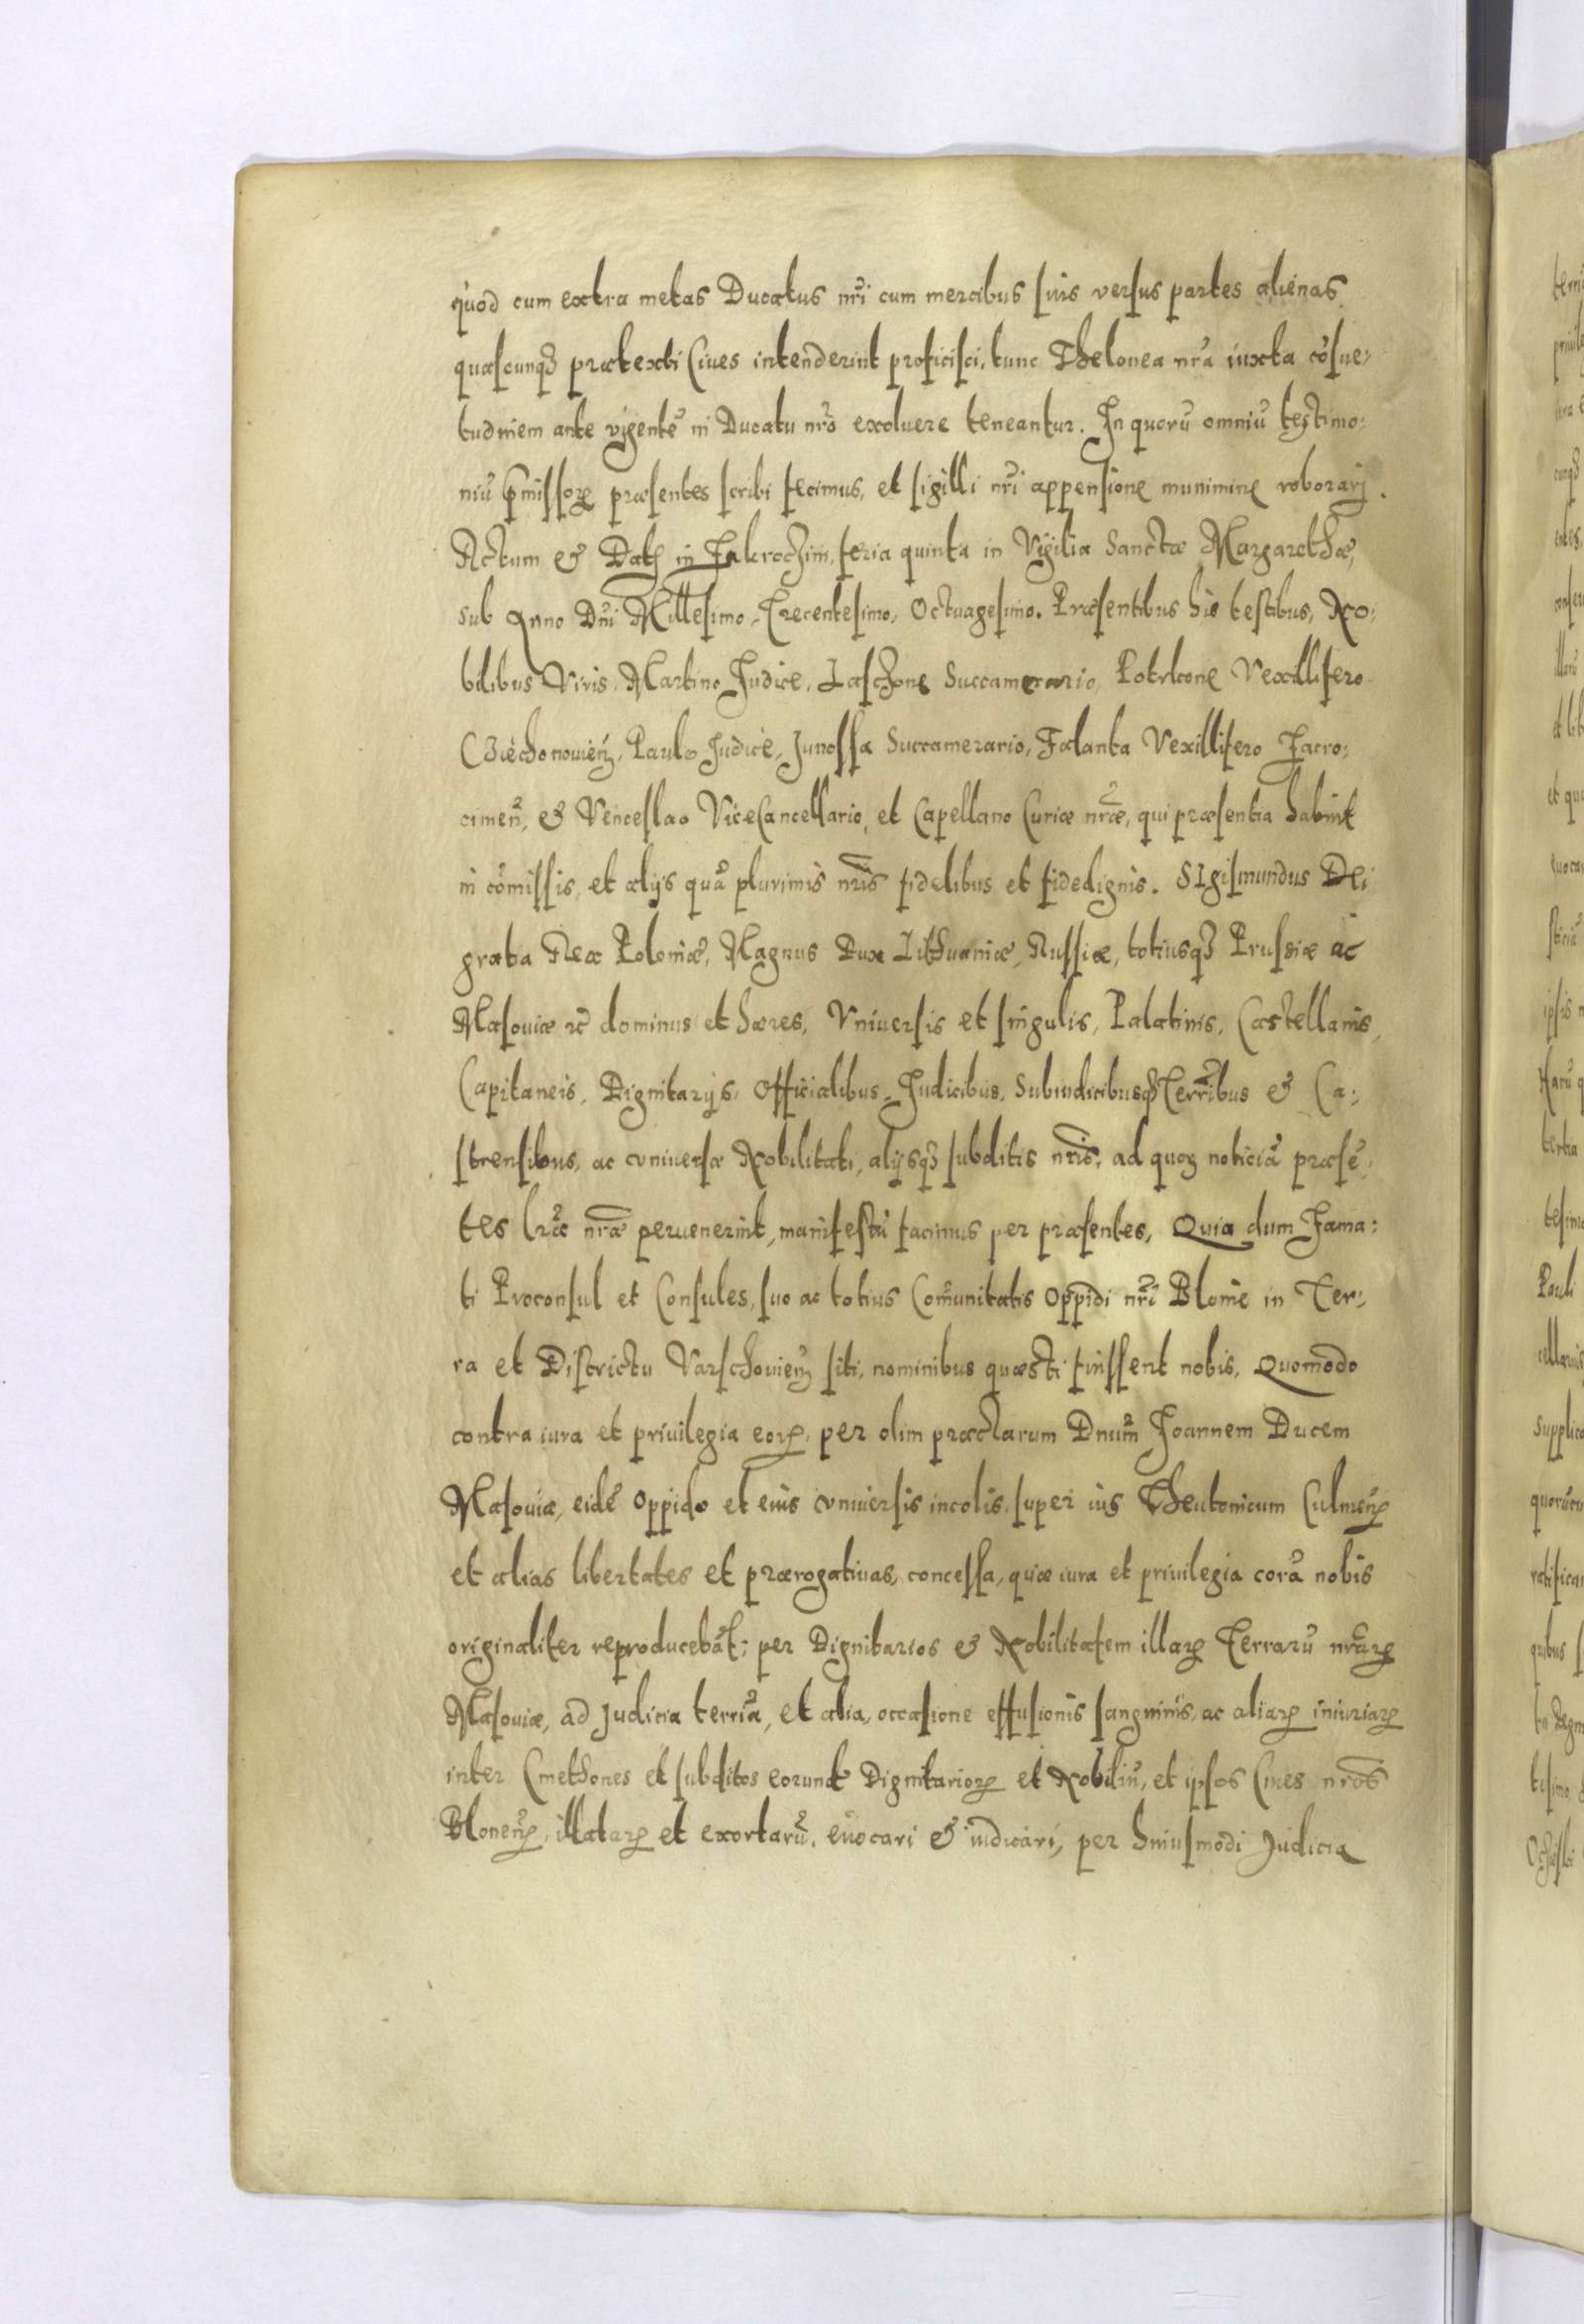 quod cum extra metas Ducatus nr̃i cum mercibus suis versus partes alienas
quascunqꝫ prætexti Ciues intenderint proficisci, tunc Thelonea nr̃a iuxta cõsue:
tudinem ante vigentẽ in Ducatu nr̃o exoluere teneantur. In quorũ omniũ testimo:
niũ p̃missoꝝ præsentes scribi fecimus, et sigilli nr̃i appensione munimine roborarj.
Actum & Dat in Zakroczim, feria quinta in Vigilia Sanctæ Margarethæ,
sub Anno Dñi Millesimo, Trecentesimo, Octuagesimo. Præsentibus his testibus, No:
bilibus Viris, Martino Judice, Lasczone Succamerario, Vexillifero
Cziechonouieñ, Paulo Judice, Junossa Succamerario, Falanta Vexillifero Zacro:
cimeñ, & Venceslao ViceCancellario, et Capellano Curiæ nr̃æ, qui præsentia habuit
in cõmissis, et alijs quã plurimis nr̃is fidelibus et fidedignis. SIgismundus Dei
gratia Rex Poloniæ, Magnus Dux Lithuaniæ, Russiæ, totiusqꝫ Prussiæ ac
Masouiæ ꝛc̃ dominus et hæres, Vniuersis et singulis, Palatinis, Castellanis,
Capitaneis, Dignitarijs, Officialibus, Judicibus, Subiudicibusqꝫ Terrr̃ibus & Ca:
strensibus, ac vniuersæ Nobilitati, alijsqꝫ subditis nr̃is, ad quoꝝ noticiã præsẽ:
tes lr̃æ nr̃æ peruenerint, manifestũ facimus per præsentes, Quia dum Fama:
ti Proconsul et Consules, suo ac totius Com̃unitatis Oppidi nr̃i Blonie in Ter:
ra et Districtu Varschouieñ siti, nominibus quæsti fuissent nobis, Quomodo
contra iura et priuilegia eoꝝ, per olim præclarum Dnum̃ Joannem Ducem
Masouiæ, eidẽ Oppido et eius vniuersis incolis, super ius Theutonicum Culmeñ
et alias libertates et prærogatiuas, concessa, quæ iura et priuilegia corã nobis
originaliter reproducebãt; per Dignitarios & Nobilitatem illaꝝ Terrarũ nr̃aꝝ
Masouiæ, ad Judicia terrr̃ia, et alia, occasione effusionis sanguinis, ac aliaꝝ iniuriaꝝ
inter Cmethones et subditos eorundẽ Dignitarioꝝ et Nobiliũ, et ipsos Ciues nr̃os
Bloneñ, illataꝝ et exortarũ, euocari & iudicari, per huiusmodi Judicia